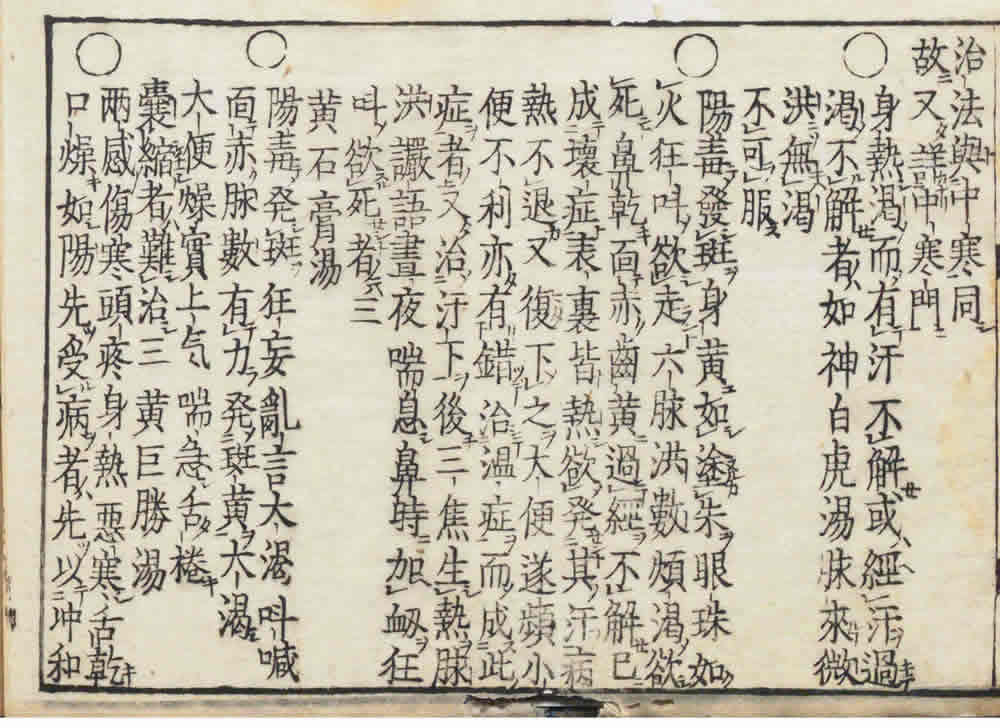 治法與中寒同
故又詳中寒門
身熱渴而有汗不解或經汗過
渴不解者如神白虎湯脉來微
洪無渴
不可服
陽毒發斑身黃如塗朱眼珠如
火狂叫欲走六脉洪數煩渴欲
死鼻乾面赤齒黃過經不解已
成壞症表裏皆熱欲発其汗病
熱不退又復下之大便遂頻小
便不利亦有錯治溫症而成此
症者又治汗下後三焦生熱脉
洪譫語晝夜喘息鼻時加衂狂
叫欲死者三
黄石膏湯
陽毒発斑狂妄亂言大渴叫喊
面赤脉數有力発斑黄大渴
大便燥實上气喘急舌捲
囊縮者難治三黄巨勝湯
兩感傷寒頭疼身熱惡寒舌乾
口燥如陽先受病者先以冲和